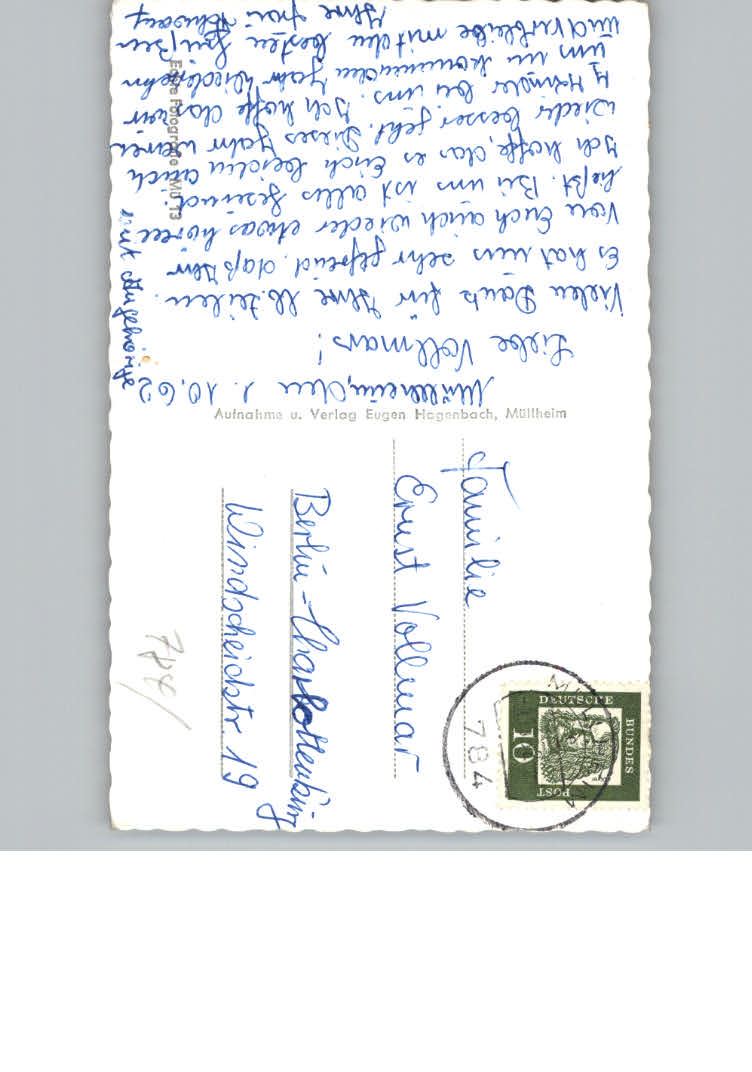 Müllheim, den 1. 10. 62
Liebe Vollmars!
Vielen Dank für Ihre lb. Zeilen.
Es hat uns sehr gefreud. daß Ihr
von Euch auch wieder etwas hören
ließt. Bei uns ist alles gesund.
Ich hoffe, das es Euch beiden auch
wieder besser geht. Dieses Jahr waren
4 Kinder bei uns. Ich hoffe das wir
uns im kommenden Jahr wiedersehn
und verbleibe mit den besten Grüßen
Ihre Frau
mit Angehörige
Echte Fotografie MÜ 13
Aufnahme u. Verlag Eugen Hagenbach, Müllheim
Familie
Ernst Vollmar
Berlin-Charlottenburg
Windscheidstr. 19
DEUTSCHE
BUNDES
POST
10
784